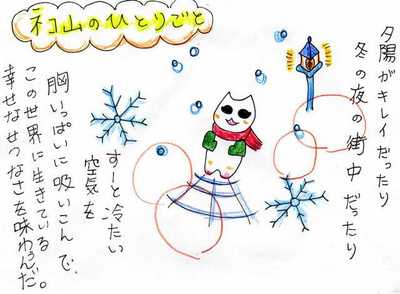 ネコ山のひとりごと
夕陽がキレイだったり
冬の夜の街中だったり
すーと冷たい
空気を
胸いっぱいに吸いこんで、
この世界に生きている
幸せなせつなさを味わうんだ。